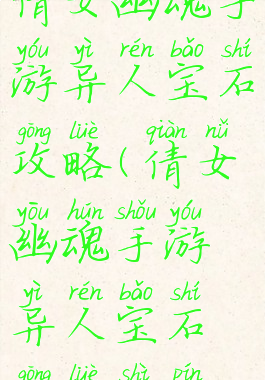 倩女幽魂手
yóu yì rén bǎo shí
游异人宝石
gōng lüè qiàn nǚ
攻略(倩女
yōu hún shǒu yóu
幽魂手游
yì rén bǎo shí
异人宝石
gōng lüè shì pín